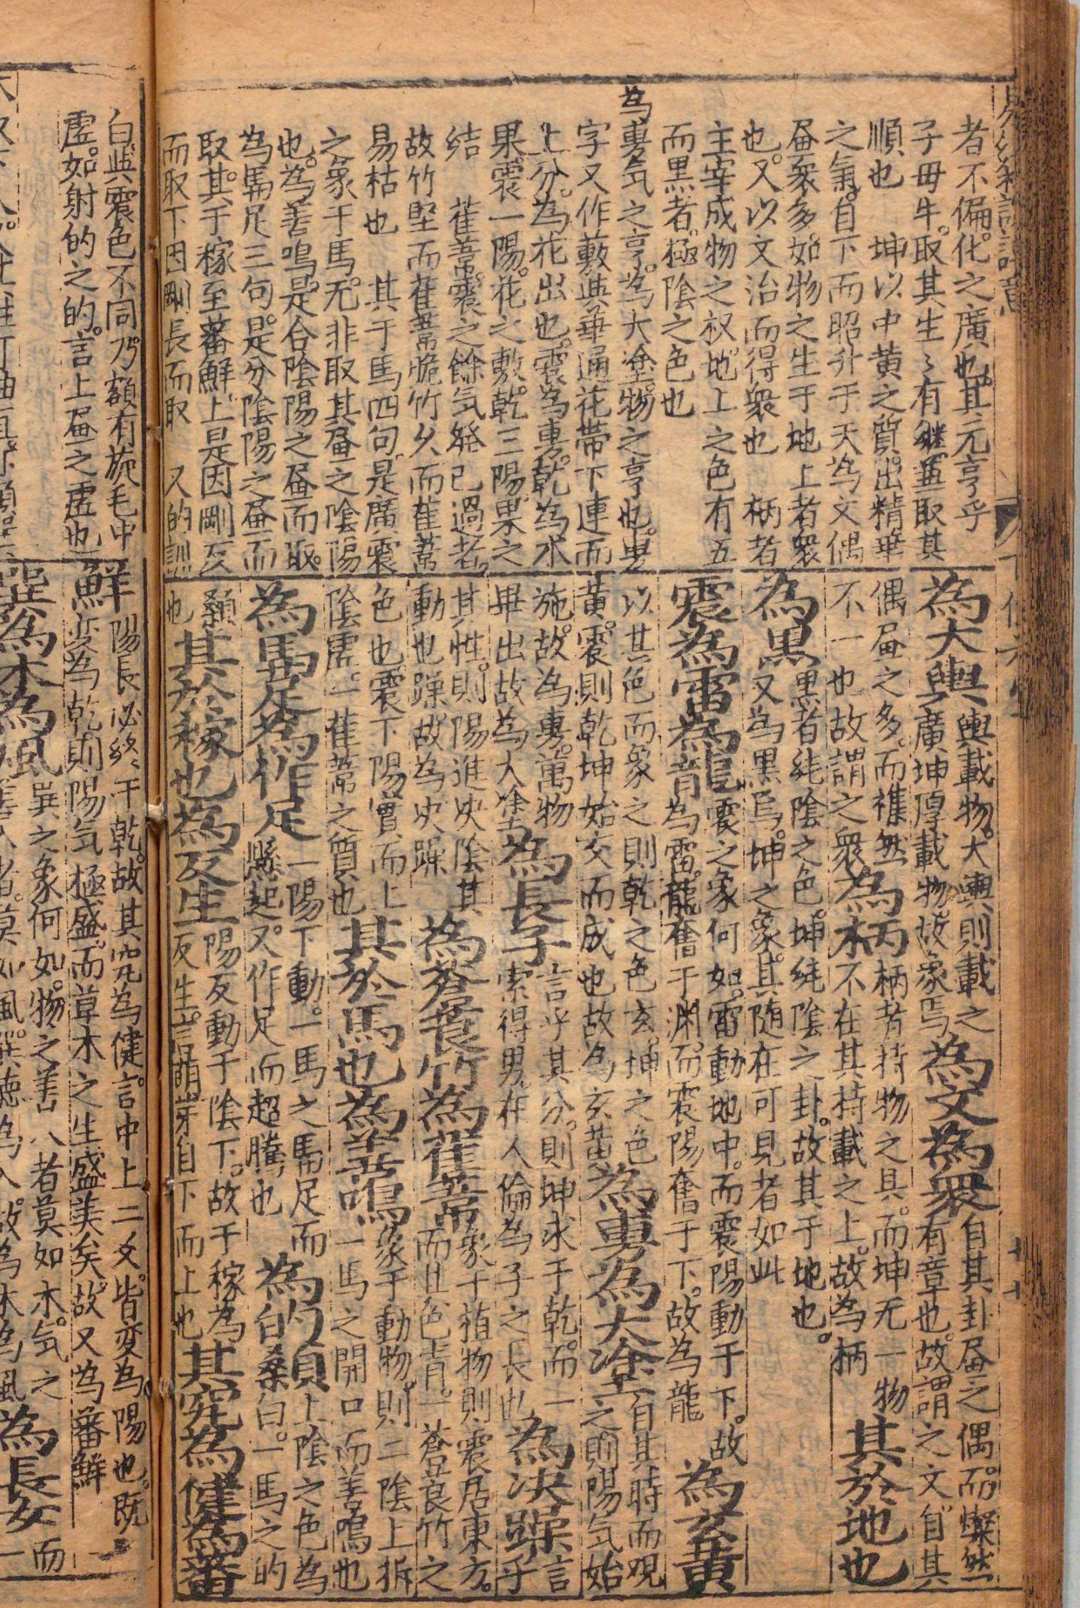 者不偏化之廣也其元亨乎
子母牛取其生〻有継義取其
順也　坤以中黄之質出精華
之氣自下而昭升于天為文偶
畫衆多如物之生于地上者衆
也又以文治而得衆也　柄者
主宰成物之权地上之色有五
而黒者極陰之色也
為旉气之亨為大塗物之亨也旉
字又作蔽與華通花蒂下連而
上分為花出也震為旉乾為木
果震一陽花之敷乾三陽果之
結　萑葦震之餘气發已過者
故竹堅而萑葦脆竹久而萑葦
易枯也　其于馬四句是廣震
之象于馬无非取其畫之陰陽
也為善鳴是合陰陽之畫而取
為馵足三句是分陰陽之畫而
取其于稼至蕃鮮上是因剛反
而取下因剛長而取　又的訓
為大輿輿載物大輿則載之為文為衆自其卦畫之偶而燦然
廣坤厚載物故象焉有章也故謂之文自其
偶畫之多而襍然為柄柄者持物之具而坤无一物
不一也故謂之衆不在其持載之上故為柄其於地也
為黒黒者純陰之色坤純陰之卦故其于地也
又為黒焉坤之象其随在可見者如此
震為雷為龍震之象何如雷動地中而震陽動于下故
為雷龍奮于淵而震陽奮于下故為龍為玄黄
以其色而象之則乾之色玄坤之色
黄震則乾坤始交而成也故為玄黄為旉為大塗自其時而观
之則陽气始
施故為旉萬物
畢出故為大塗為長子言乎其分則坤求于乾而一
索得男在人倫為子之長也為决躁言
乎
其性則陽進决陰其
動也躁故為决躁為蒼筤竹為萑葦象于植物則震居東方
而其色青一蒼筤竹之
色也震下陽實而上
陰虛一萑葦之質也其於馬也為善鳴象于動物則二陰上拆
一馬之開口而善鳴也
為馵足為作足一陽下動一馬之馵足而
懸起又作足而超騰也為的顙上陰之色為
白桑白一馬之的
顙
也其於稼也為反生陽反動于陰下故于稼為
反生言萌芽自下而上也其究為健為蕃
白與震色不同乃額有旋毛中
虛如射的之的言上畫之虛也
鮮陽長必終于乾故其究為健言中上二爻皆变為陽也既
变為乾則陽气極盛而草木之生盛美矣故又為蕃鮮
巽為木為風巽之象何如物之善入者莫如木气之
善入者莫如風巽德為入故為木為風為長女而
一